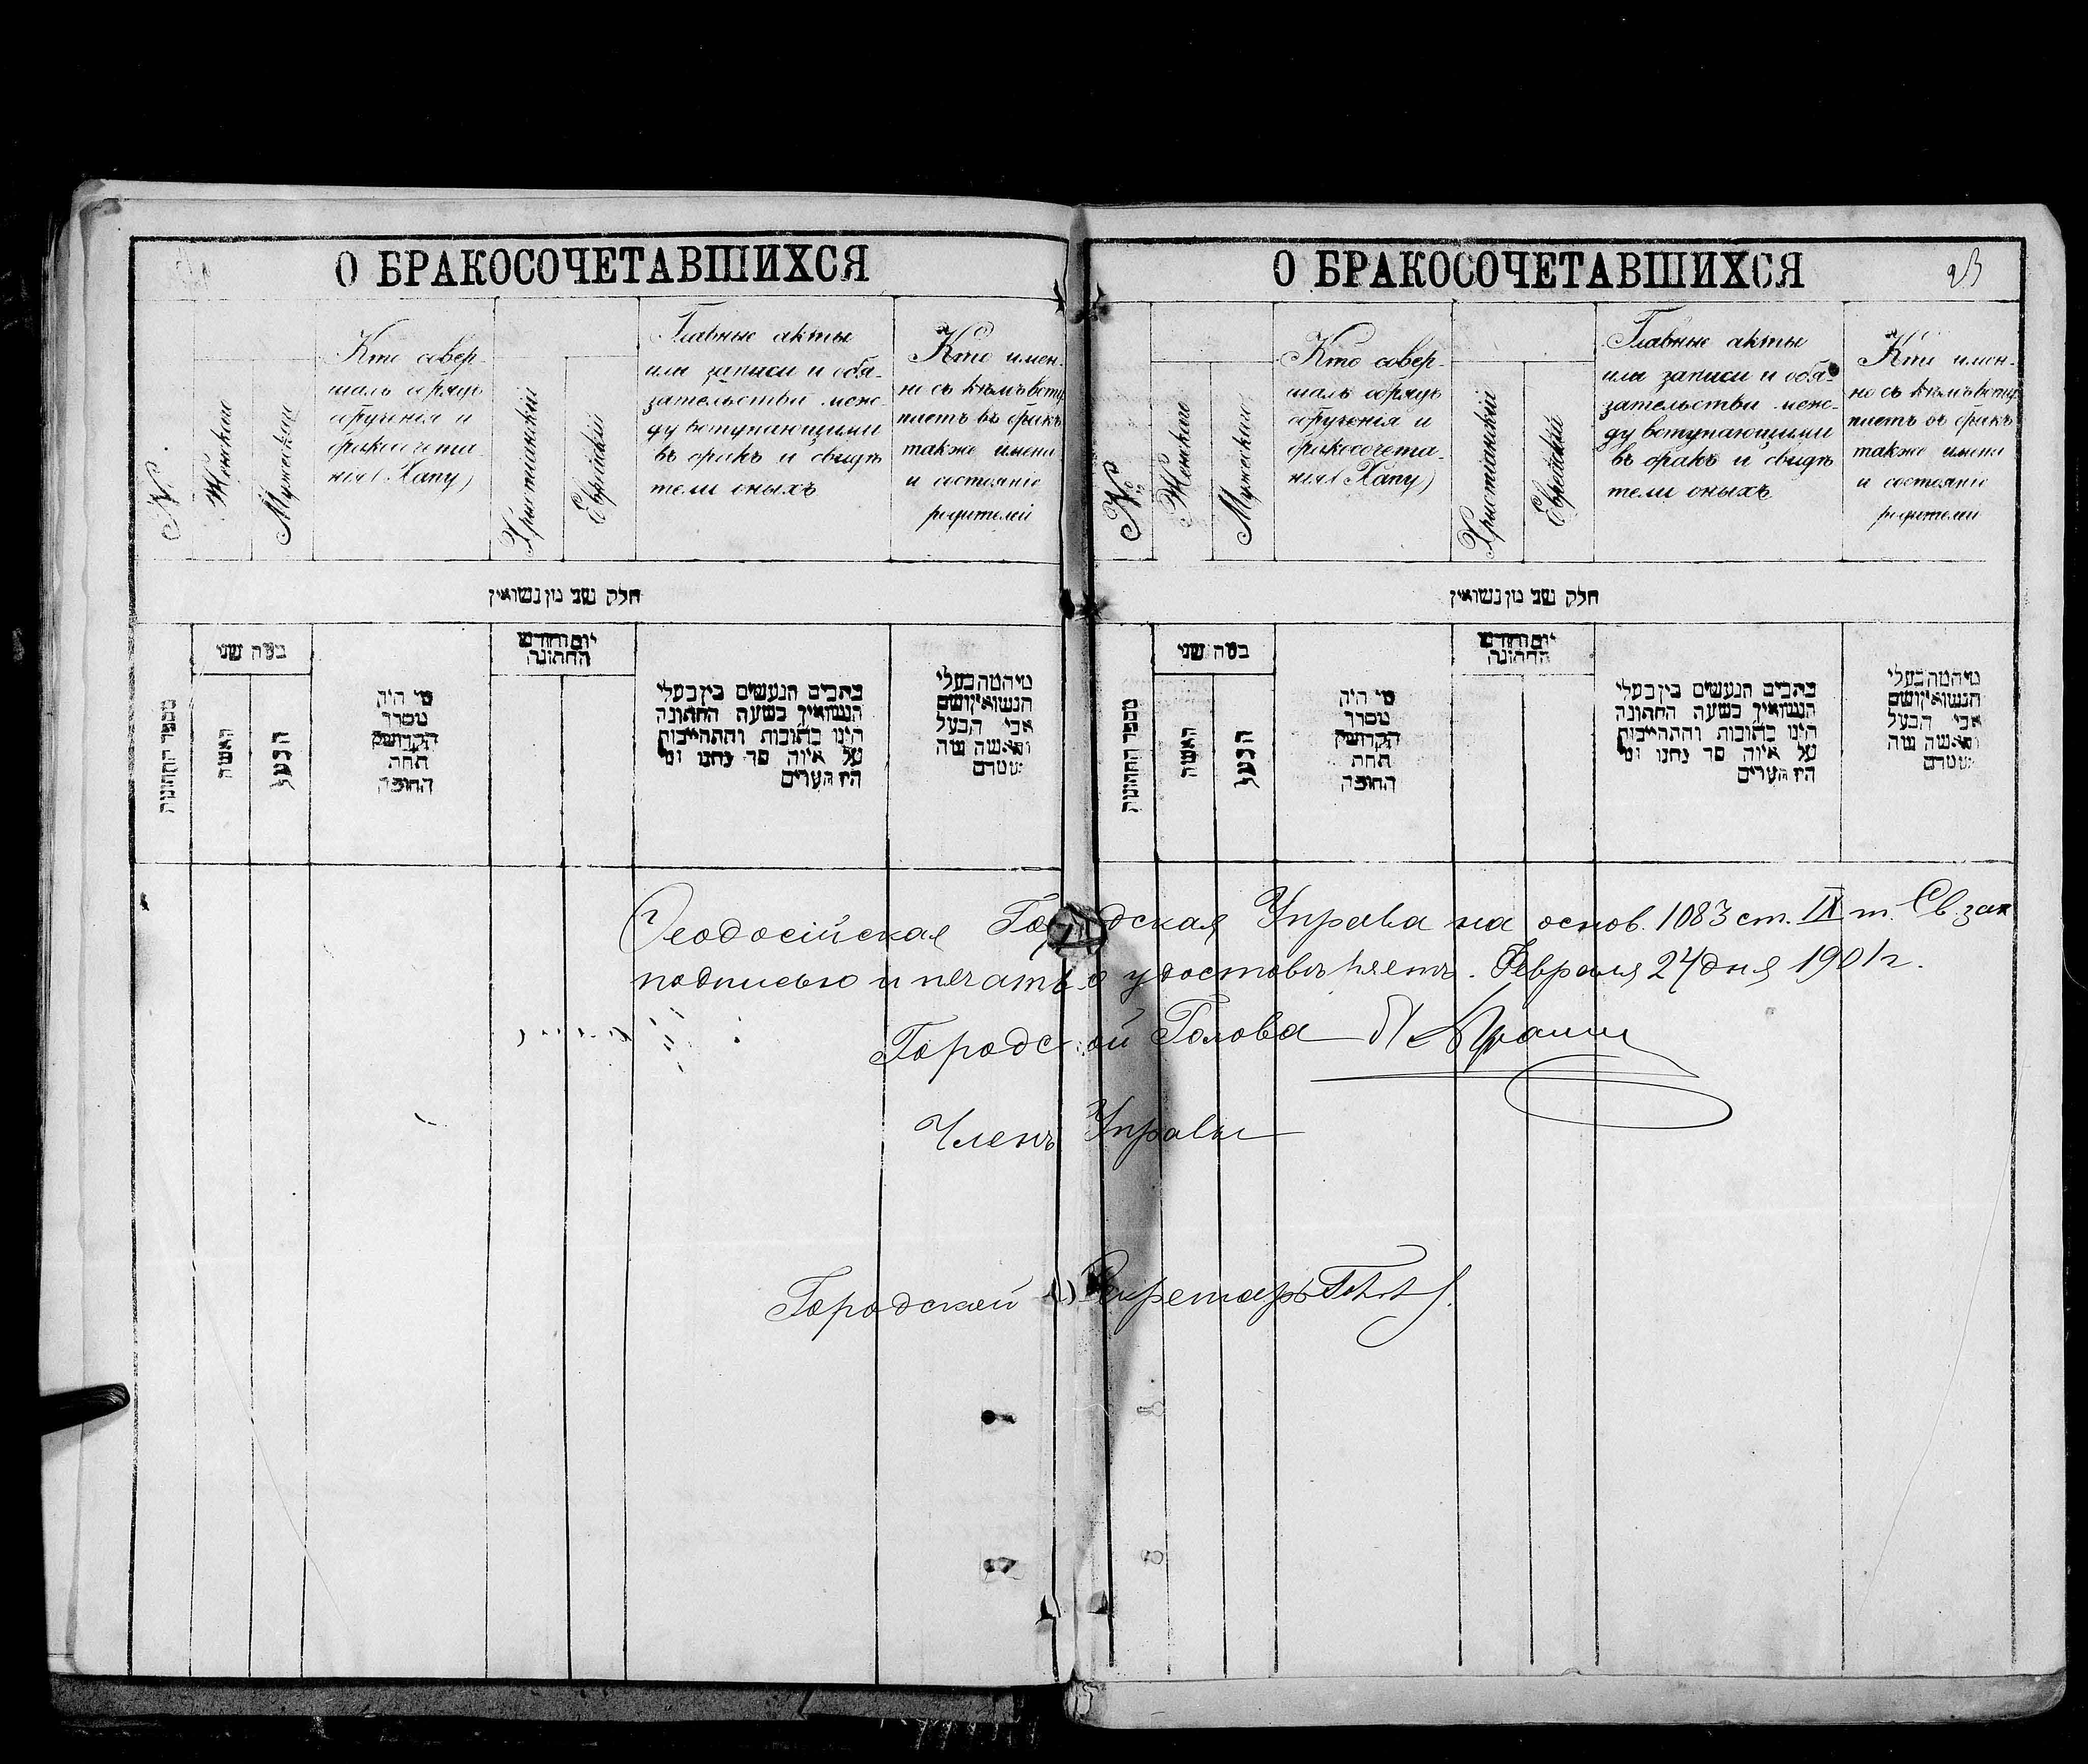 О БРАКОСОЧЕТАВШИХСЯ
№
Женскаго
Мужескаго
Кто совер-
шалъ обрядъ
обрученія и
бракосочета-
нія (Хапу)
Христіанскій
Еврейскій
Главные акты
или записи и обя-
зательствы меж-
ду вступающими
въ бракъ и свидѣ
тели оныхъ
Кто имен-
но съ кѣмъ всту
паетъ въ бракъ
также имена
и состояніе
родителей
חלק שני מן נשואין
מספר החתונות
במה שני
האשה
הבעל
מי היה
מסדר
הקדושין
תחת
החופה
יום וחודש
החתונה
כתבים הנעשים בין בעלי
הנשואין בשעת החתונה
היינו כתובות והתחייבות
על איזה סך נתנו ומי
היו העדים
אבי הבעל
О БРАКОСОЧЕТАВШИХСЯ
23
№
Женскаго
Мужескаго
Кто совер-
шалъ обрядъ
обрученія и
бракосочета-
нія (Хапу)
Христіанскій
Еврейскій
Главные акты
или записи и обя-
зательствы меж-
ду вступающими
въ бракъ и свидѣ
тели оныхъ
Кто имен-
но съ кѣмъ всту
паетъ въ бракъ
также имена
и состояніе
родители
חלק שני מן נשואין
מספר החתונות
במה שני
האשה
הבעל
מי היה
מסדר
הקדושין
תחת
החופה
יום וחודש
החתונה
כתבים הנעשים בין בעלי
הנשואין בשעת החתונה
היינו כתובות והתחייבות
על איזה סך נתנו ומי
היו העדים
אבי הבעל
Ѳеодосійская Городская Управа на основ. 1083 ст. IX т. Св. зак
подписью и печатью удостовѣряетъ. Февраля 24 дня 1901 г.
Городской Голова
Членъ Управы
Городской Секретарь